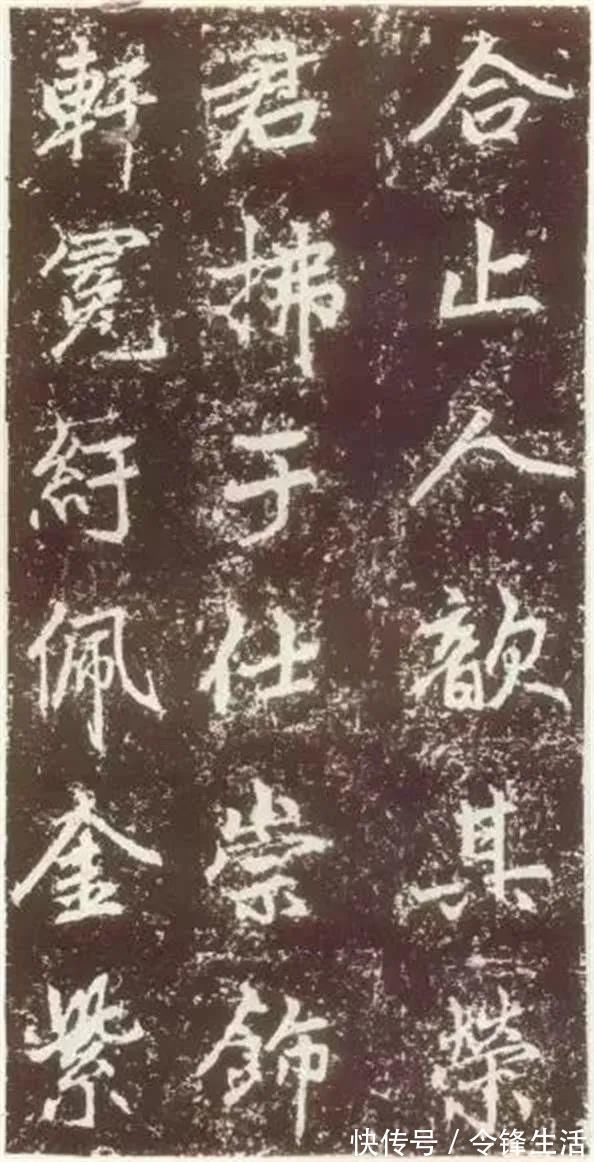 合止人歆其榮
君拂于仕崇飾
軒冕紆佩金紫
快传号 / 令锋生活